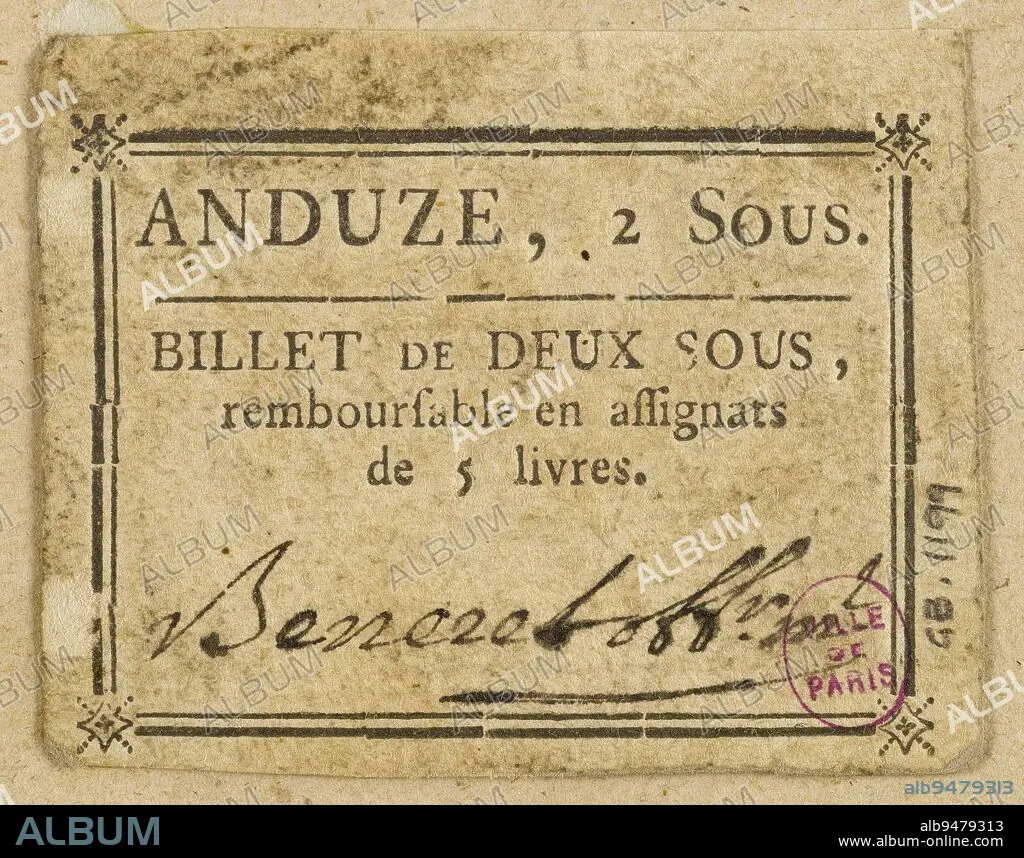 ANDUZE, 2 SOUS.
BILLET DE DEUX SOUS,
rembourſable en aſſignats
de 5 livres.
VILLE
DE
PARIS
GB.1199
alb9479313
ALBUM
alb9479313
www.album-online.com